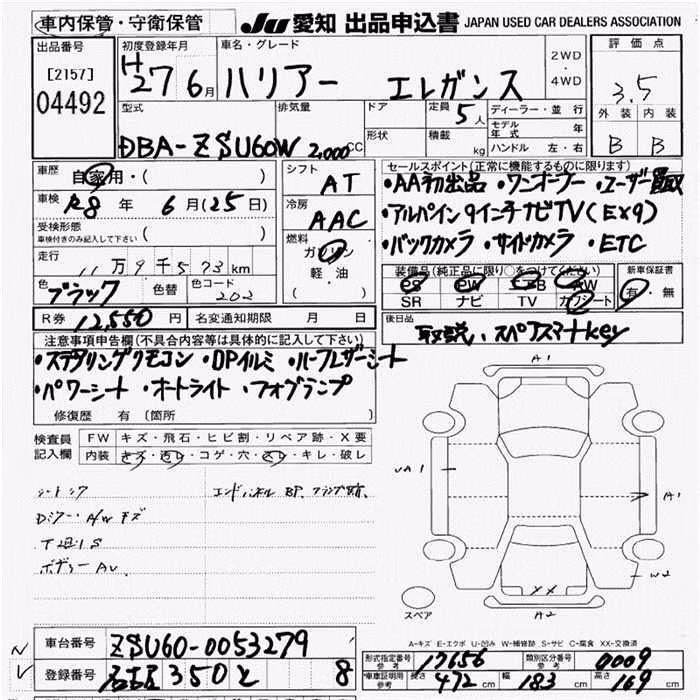 車内保管・守衛保管
JU 愛知 出品申込書 JAPAN USED CAR DEALERS ASSOCIATION
出品番号 [2157] 04492
初度登録年月 H27 6月
車名・グレード ハリアー エレガンス
2WD・4WD
評価点 3.5
外装 内装
B B
型式 DBA-ZSU60W
排気量 2,000cc
ドア
形状
定員 5人
積載 kg
ディーラー・並行
モデル年式 年
ハンドル 左・右
車歴 自家用・( )
車検 R8年 6月(25日)
受検形態 車検付きのみ記入して下さい ( )
走行 11万9千573km
色 ブラック 色替 色コード 202
R券 12,550円 名変通知期限 月 日
シフト AT
冷房 AAC
燃料 ガソリン 軽・油 ( )
セールスポイント(正常に機能するものに限ります)
・AA初出品 ・ワンオーナー ・ユーザー買取
・アルパイン9インチナビTV(EX9)
・バックカメラ ・サイドカメラ ・ETC
装備品(純正品に限り○をつけてください)
PS PW AB AW
SR ナビ TV カワシート
新車保証書 有・無
後日品 取説、スペアスマートkey
注意事項申告欄(不具合内容等は具体的に記入して下さい)
・ステアリングリモコン ・DPイルミ ・ハーフレザーシート
・パワーシート ・オートライト ・フォグランプ
修復歴 有 〔箇所
検査員記入欄
FW キズ・飛石・ヒビ割・リペア跡・X要
内装 キズ・汚レ・コゲ・穴・スレ・キレ・破レ
エンドパネル BP
キズ
A1
A1
A2
W2
XX
スペア
A-キズ E-エクボ U-凹み W-補修跡 S-サビ C-腐食 XX-交換済
車台番号 ZSU60-0053279
登録番号 名古屋 350 と 8
形式指定番号 参考 17656 類別区分番号 参考 0009
*車庫証明用 参考 長さ 472cm 幅 183cm 高さ 169cm